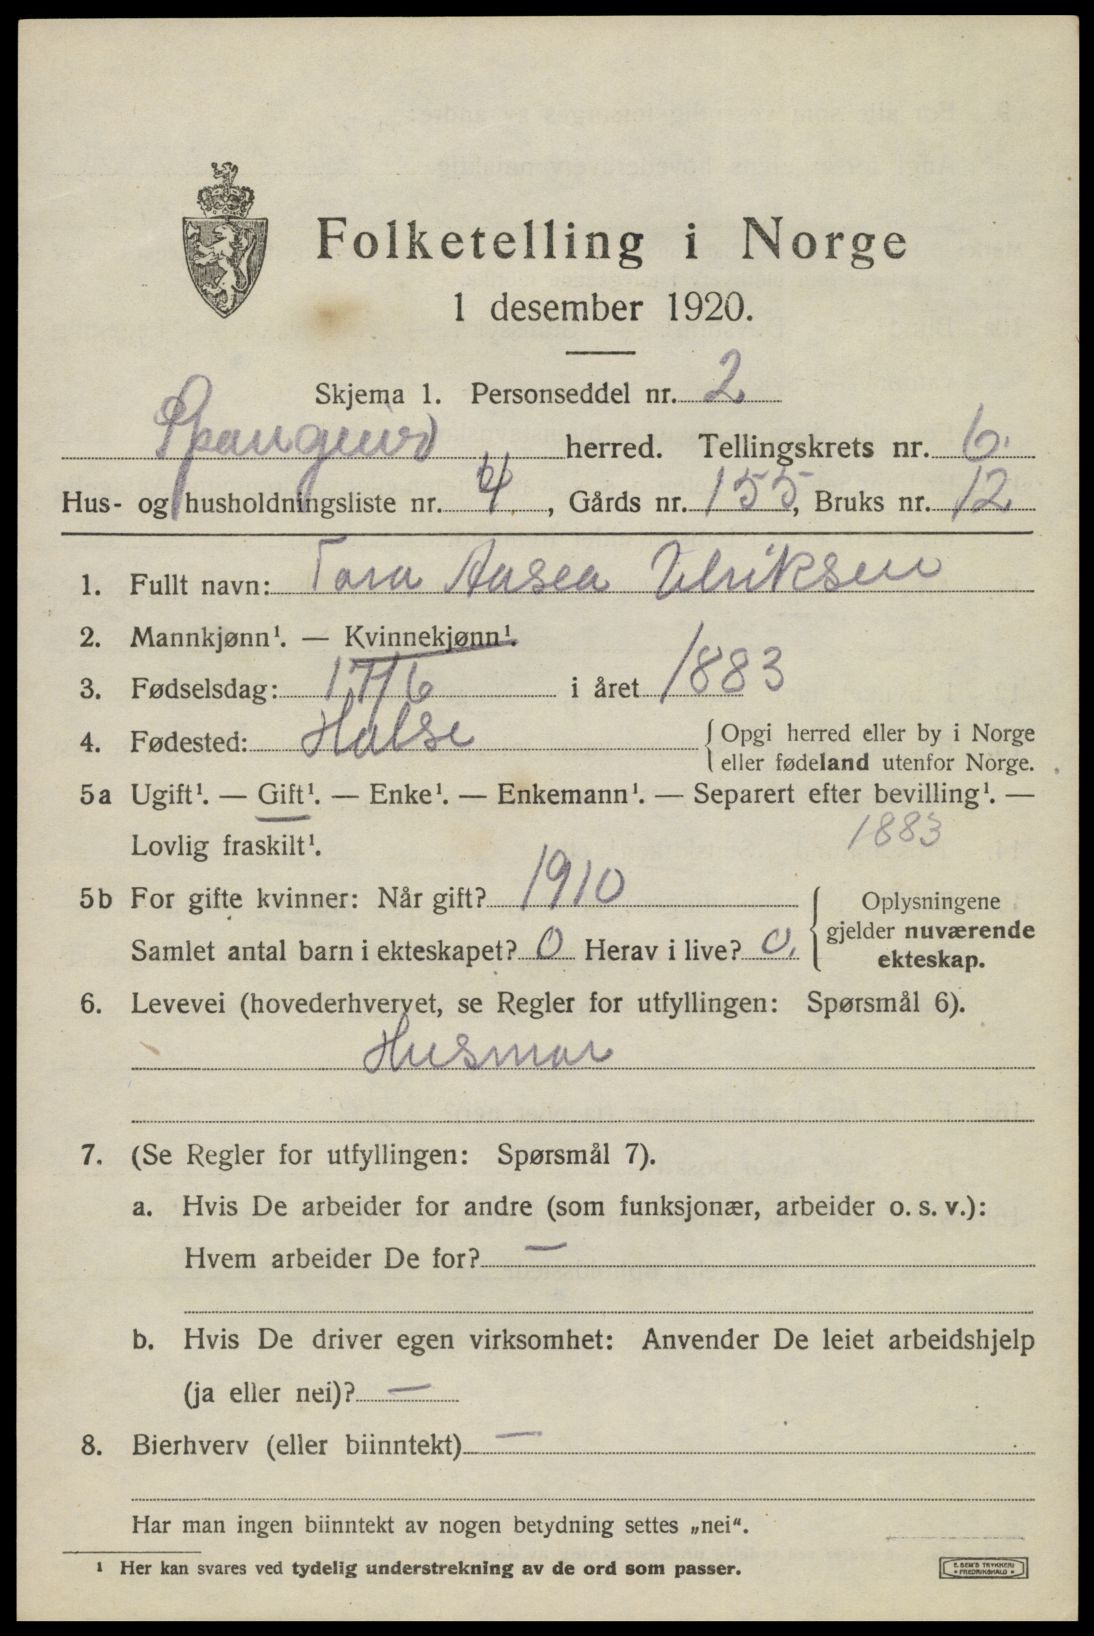 Folketelling i Norge
1 desember 1920.
Skjema 1. Personseddel nr. 2
Spangereid herred. Tellingskrets nr. 6.
Hus- og husholdningsliste nr. 4, Gårds nr. 155, Bruks nr. 12
1. Fullt navn: Tora Aasea Ulriksen
2. Mannkjønn¹. — Kvinnekjønn¹.
3. Fødselsdag: 17/6 i året 1883
4. Fødested: Halse { Opgi herred eller by i Norge
eller fødeland utenfor Norge.
5a Ugift¹. — Gift¹. — Enke¹. — Enkemann¹. — Separert efter bevilling¹. —
Lovlig fraskilt¹. 1883
5b For gifte kvinner: Når gift? 1910 { Oplysningene
Samlet antal barn i ekteskapet? 0 Herav i live? 0. gjelder nuværende
ekteskap.
6. Levevei (hovederhvervet, se Regler for utfyllingen: Spørsmål 6).
Husmor
7. (Se Regler for utfyllingen: Spørsmål 7).
a. Hvis De arbeider for andre (som funksjonær, arbeider o. s. v.):
Hvem arbeider De for? —
b. Hvis De driver egen virksomhet: Anvender De leiet arbeidshjelp
(ja eller nei)? —
8. Bierhverv (eller biinntekt) —
Har man ingen biinntekt av nogen betydning settes „nei“.
¹ Her kan svares ved tydelig understrekning av de ord som passer.
E. SEM'S TRYKKERI
• FREDRIKSHALD •